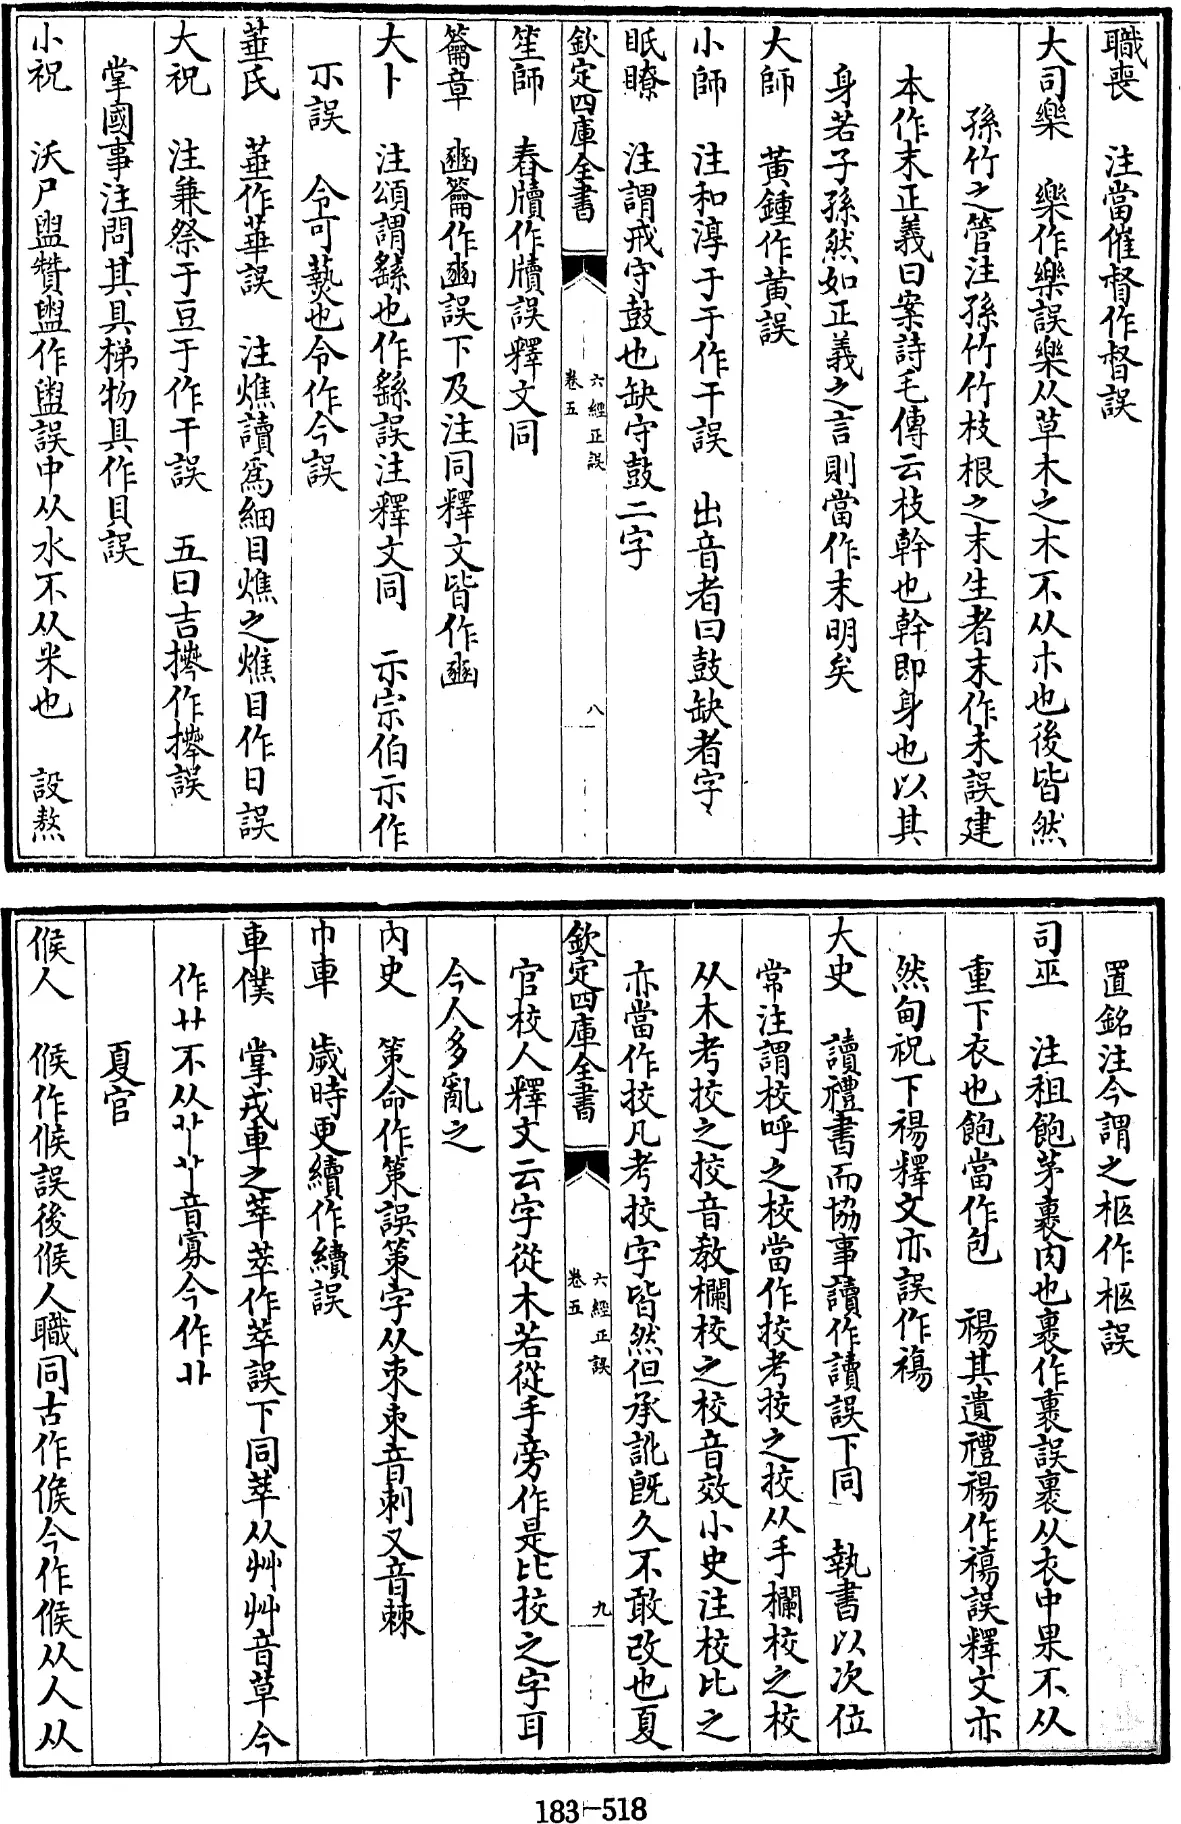 職喪　注當催督作督誤
大司樂　樂作樂誤樂从草木之木不从朩也後皆然
孫竹之管注孫竹竹枝根之末生者末作未誤建
本作末正義曰案詩毛傳云枝幹也幹即身也以其
身若子孫然如正義之言則當作末明矣
大師　黃鍾作黄誤
小師　注和淳于于作干誤　出音者曰鼓缺者字
眡瞭　注謂戒守鼓也缺守鼓二字
欽定四庫全書　六經正誤　卷五　八
笙師　舂牘作牘誤釋文同
籥章　豳籥作豳誤下及注同釋文皆作豳
大卜　注頌謂繇也作繇誤注釋文同　示宗伯示作
示誤　令可爇也令作今誤
菙氏　菙作華誤　注燋讀爲細目燋之燋目作日誤
大祝　注兼祭于豆于作干誤　五曰吉𢷎作𢷎誤
掌國事注問其具梯物具作貝誤
小祝　沃尸盥贊盥作盥誤中从水不从米也　設熬
置銘注今謂之柩作柩誤
司巫　注租飽茅裹肉也裹作裏誤裹从衣中果不从
重下衣也飽當作包　禓其遺禮禓作禓誤釋文亦
然甸祝下禓釋文亦誤作禓
大史　讀禮書而協事讀作讀誤下同　執書以次位
常注謂校呼之校當作挍考挍之挍从手欄校之校
从木考挍之挍音教欄校之校音效小史注校比之
亦當作挍凡考挍字皆然但承訛既久不敢改也夏
欽定四庫全書　六經正誤　卷五　九
官校人釋文云字從木若從手旁作是比挍之字耳
今人多亂之
內史　策命作策誤策字从朿朿音刺又音棘
巾車　歲時更續作續誤
車僕　掌戎車之萃萃作萃誤下同萃从艸艸音草今
作艹不从𦫳𦫳音寡今作丱
夏官
候人　候作候誤後候人職同古作𠋫今作候从人从